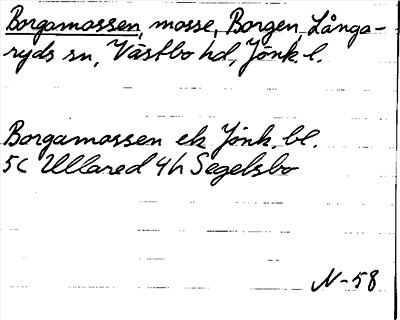 Borgamossen, mosse, Borgen, Långa-
ryds sn, Västbo hd, Jönk. l.
Borgamossen ek Jönk. bl.
5C Ullared 4h Segelsbo
N-58